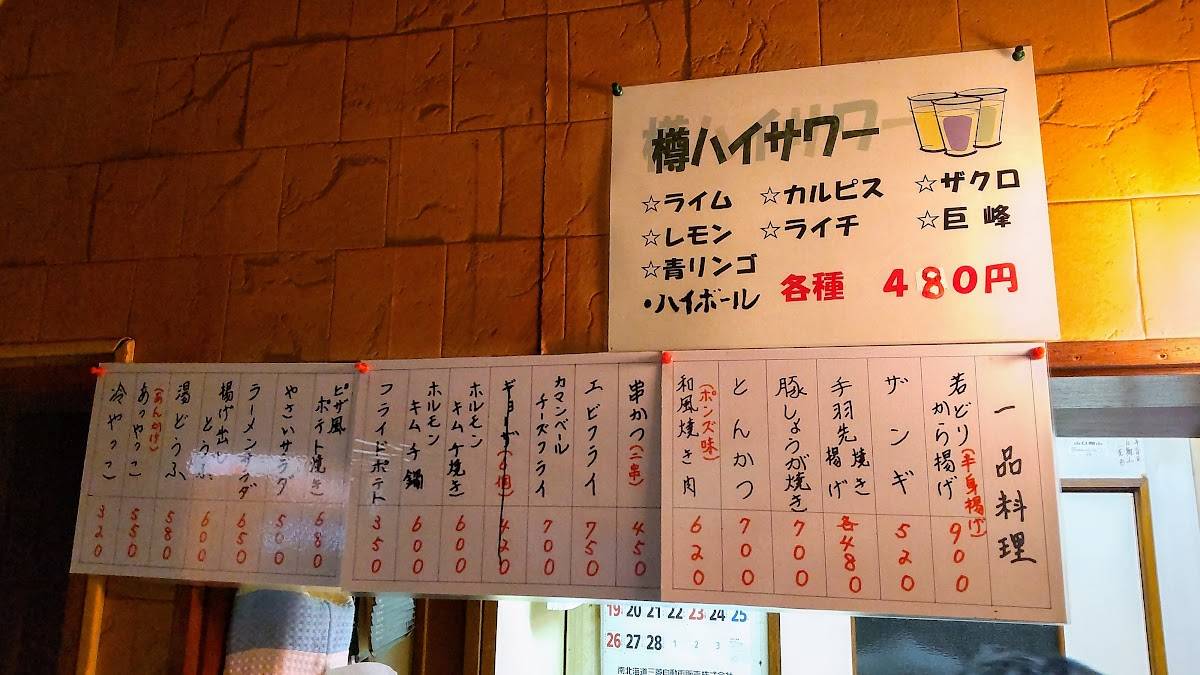 樽ハイサワー
☆ライム ☆カルピス ☆ザクロ
☆レモン ☆ライチ ☆巨峰
☆青リンゴ
・ハイボール 各種 480円
一品料理
若どり(半身揚げ)
から揚げ 900
ザンギ 520
手羽先 焼き
揚げ 各480
豚しょうが焼き 700
とんかつ 700
(ポンズ味)
和風焼き肉 620
串かつ(二串) 450
エビフライ 750
カマンベール
チーズフライ 700
ホルモン
キムチ焼き 600
ホルモン
キムチ鍋 600
フライドポテト 350
ピザ風
ポテト焼き 680
やさいサラダ 500
ラーメンサラダ 650
揚げ出し
とうふ 600
湯どうふ 580
(あんかけ)
あつやっこ 550
冷やっこ 320
19 20 21 22 23 24 25
26 27 28 1 2 3
南北海道三菱自動車販売株式会社